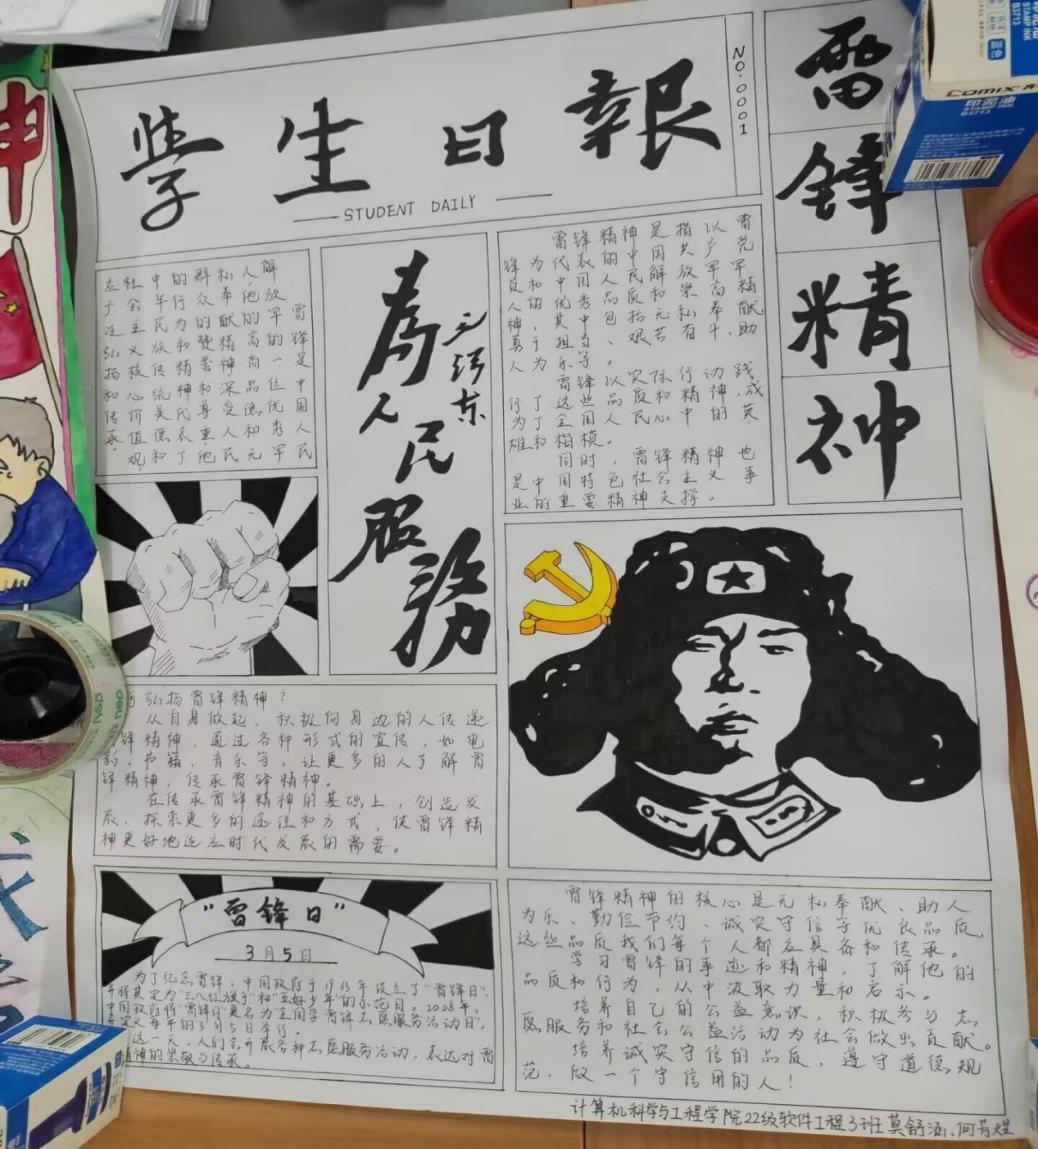 學生日報
STUDENT DAILY
NO.0001
雷锋精神
雷锋是中国人民
解放军的一位优秀军
人,他的高尚品德和无
私奉献精神深受人民
的行为和
社会主义核心价值观
弘扬和传承。
為人民服務
毛泽东
雷锋精神是指以雷
锋为代表的中国共产党
员和中国人民解放军军
人的优秀品质和崇高精
神,其中包括无私奉献、
勇于担当、艰苦奋斗、助
人为乐等。
雷锋以实际行动践
行了这些品质和精神,成
为了全国人民心中的英
雄和楷模。
同时,雷锋精神也
是中国特色社会主义事
业的重要精神支撑。
弘扬雷锋精神?
从自身做起,积极向身边的人传递
锋精神,通过各种形式的宣传,如电
影、书籍、音乐等,让更多的人了解雷
锋精神,传承雷锋精神。
在传承雷锋精神的基础上,创造发
展,探索更多的途径和方式,使雷锋精
神更好地适应时代发展的需要。
"雷锋日"
3月5日
为了纪念雷锋,中国政府于1963年设立了"雷锋日",
并将其定为"三八红旗手"和"五好少年"的示范日。2008年,
中国政府将"雷锋日"更名为"全国学雷锋志愿服务活动日",
定于每年的3月5日举行。
这一天,人们会开展各种志愿服务活动,表达对雷
精神的崇敬与传承。
雷锋精神的核心是无私奉献、助人
为乐、勤俭节约、诚实守信等优良品质,
这些品质我们每个人都应具备和传承。
学习雷锋的事迹和精神,了解他的
品质和行为,从中汲取力量和启示。
培养自己的公益意识,积极参与志
愿服务和社会公益活动为社会做出贡献。
培养诚实守信的品质,遵守道德规
范,做一个守信用的人!
计算机科学与工程学院22级软件工程3班 莫舒涵、何芳煌
Comix
印泥油
STAMP INK
B3713
蓝色
deli